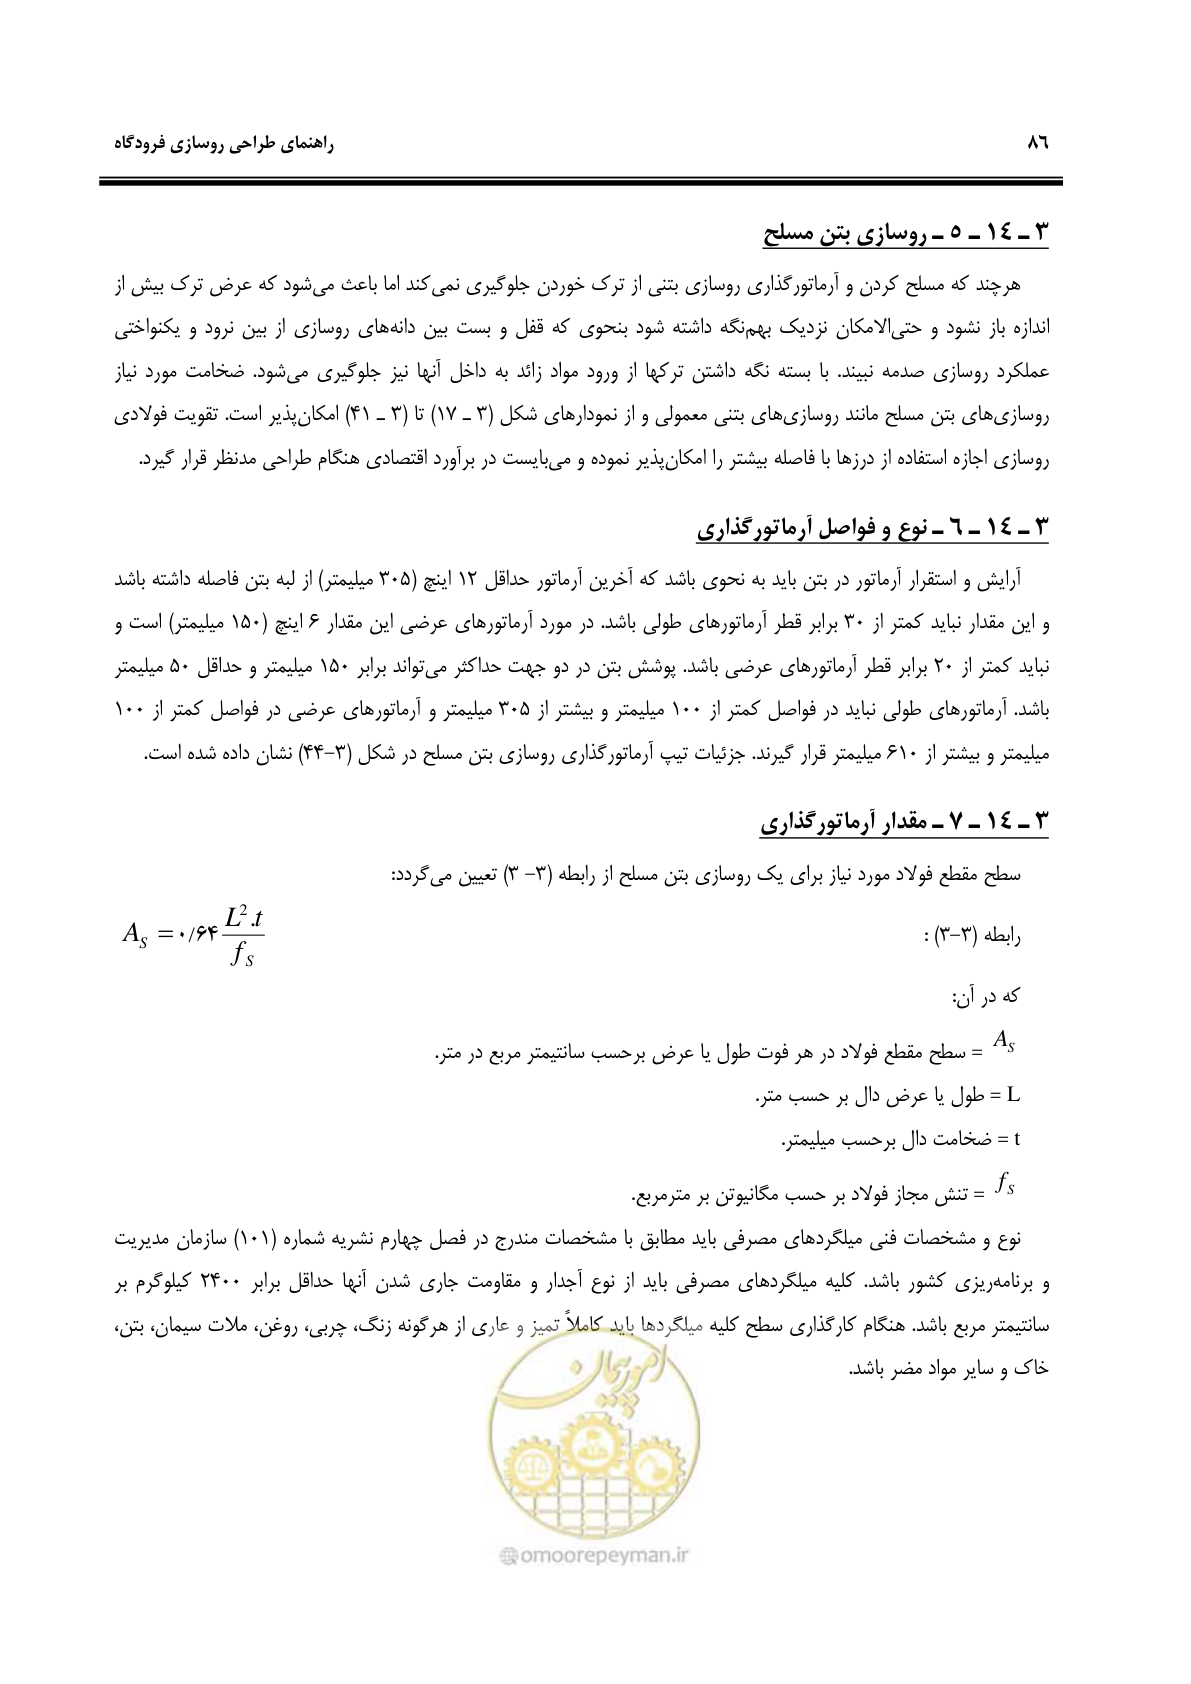 ۸۶
راهنمای طراحی روسازی فرودگاه
۳ ـ ۱۴ ـ ۵ ـ روسازی بتن مسلح
هرچند که مسلح کردن و آرماتورگذاری روسازی بتنی از ترک خوردن جلوگیری نمی‌کند اما باعث می‌شود که عرض ترک بیش از
اندازه باز نشود و حتی‌الامکان نزدیک بهم‌نگه داشته شود بنحوی که قفل و بست بین دانه‌های روسازی از بین نرود و یکنواختی
عملکرد روسازی صدمه نبیند. با بسته نگه داشتن ترکها از ورود مواد زائد به داخل آنها نیز جلوگیری می‌شود. ضخامت مورد نیاز
روسازی‌های بتن مسلح مانند روسازی‌های بتنی معمولی و از نمودارهای شکل (۳ ـ ۱۷) تا (۳ ـ ۴۱) امکان‌پذیر است. تقویت فولادی
روسازی اجازه استفاده از درزها با فاصله بیشتر را امکان‌پذیر نموده و می‌بایست در برآورد اقتصادی هنگام طراحی مدنظر قرار گیرد.
۳ ـ ۱۴ ـ ۶ ـ نوع و فواصل آرماتورگذاری
آرایش و استقرار آرماتور در بتن باید به نحوی باشد که آخرین آرماتور حداقل ۱۲ اینچ (۳۰۵ میلیمتر) از لبه بتن فاصله داشته باشد
و این مقدار نباید کمتر از ۳۰ برابر قطر آرماتورهای طولی باشد. در مورد آرماتورهای عرضی این مقدار ۶ اینچ (۱۵۰ میلیمتر) است و
نباید کمتر از ۲۰ برابر قطر آرماتورهای عرضی باشد. پوشش بتن در دو جهت حداکثر می‌تواند برابر ۱۵۰ میلیمتر و حداقل ۵۰ میلیمتر
باشد. آرماتورهای طولی نباید در فواصل کمتر از ۱۰۰ میلیمتر و بیشتر از ۳۰۵ میلیمتر و آرماتورهای عرضی در فواصل کمتر از ۱۰۰
میلیمتر و بیشتر از ۶۱۰ میلیمتر قرار گیرند. جزئیات تیپ آرماتورگذاری روسازی بتن مسلح در شکل (۳-۴۴) نشان داده شده است.
۳ ـ ۱۴ ـ ۷ ـ مقدار آرماتورگذاری
سطح مقطع فولاد مورد نیاز برای یک روسازی بتن مسلح از رابطه (۳- ۳) تعیین می‌گردد:
رابطه (۳-۳) : A_S = ۰/۶۴ L².t / f_S
که در آن:
A_S = سطح مقطع فولاد در هر فوت طول یا عرض برحسب سانتیمتر مربع در متر.
L = طول یا عرض دال بر حسب متر.
t = ضخامت دال برحسب میلیمتر.
f_S = تنش مجاز فولاد بر حسب مگانیوتن بر مترمربع.
نوع و مشخصات فنی میلگردهای مصرفی باید مطابق با مشخصات مندرج در فصل چهارم نشریه شماره (۱۰۱) سازمان مدیریت
و برنامه‌ریزی کشور باشد. کلیه میلگردهای مصرفی باید از نوع آجدار و مقاومت جاری شدن آنها حداقل برابر ۲۴۰۰ کیلوگرم بر
سانتیمتر مربع باشد. هنگام کارگذاری سطح کلیه میلگردها باید کاملاً تمیز و عاری از هرگونه زنگ، چربی، روغن، ملات سیمان، بتن،
خاک و سایر مواد مضر باشد.
امور پیمان
@omoorepeyman.ir